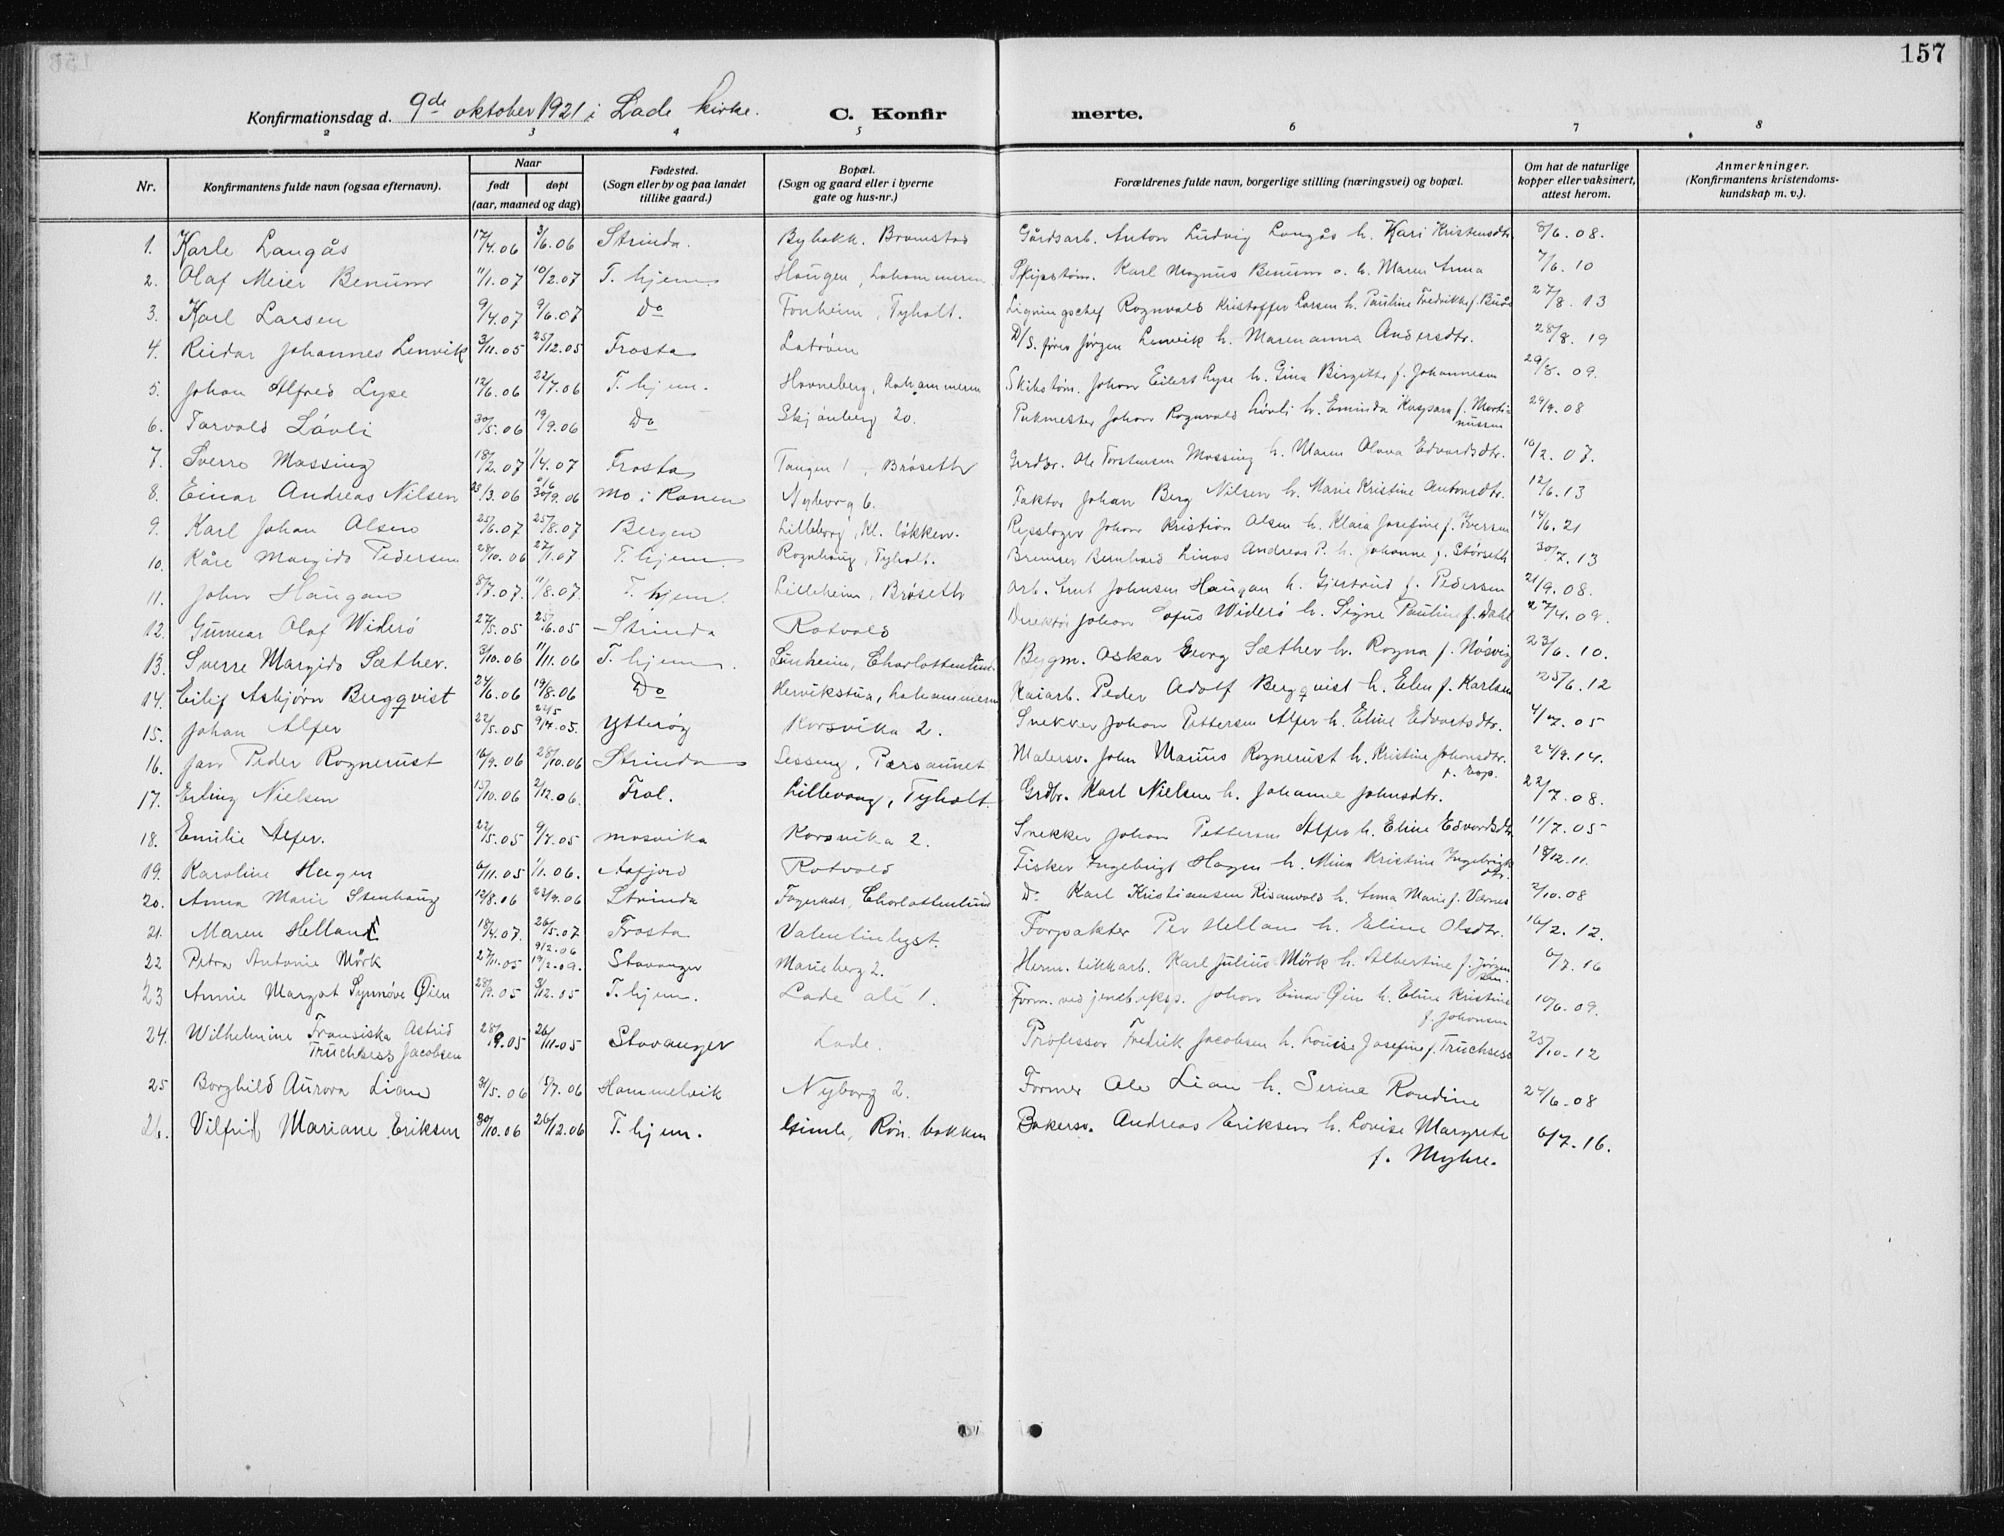 157
Konfirmationsdag d. 9de oktober 1921 i Lade kirke. C. Konfirmerte.
2 3 4 5 6 7 8
Nr. Konfirmantens fulde navn (ogsaa efternavn). Naar født døpt (aar, maaned og dag) Fødested. (Sogn eller by og paa landet tillike gaard.) Bopæl. (Sogn og gaard eller i byerne gate og hus-nr.) Forældrenes fulde navn, borgerlige stilling (næringsvei) og bopæl. Om hat de naturlige kopper eller vaksinert, attest herom. Anmerkninger. (Konfirmantens kristendomskundskap m. v.).
1. Karle Langås 17/4.06 3/6.06 Strinda. Bybakk. Bromstad Gårdsarb. Anton Ludvig Langås h. Kari Kristensdtr. 8/6.08.
2. Olaf Meier Benum 11/1.07 10/2.07 T. hjem Haugen, Ladehammeren Skipstøm. Karl Magnus Benum o. h. Maren Anna 7/6.10
3. Karl Larsen 9/4.07 9/6.07 Do Fonheim, Tyholt. Ligningschef Ragnvald Kristoffer Larsen h. Pauline Fredrikke f. Buås 27/8.13
4. Reidar Johannes Lenvik 3/11.05 25/12.05 Frosta Ladröen D/S. fører Jørgen Lenvik h. Marenanna Andersdtr. 28/8.19
5. Johan Alfred Lyse 12/6.06 22/7.06 T. hjem. Havneberg, Ladehammeren Skibstøm. Johan Eilert Lyse h. Gina Birgitte f. Johannesen 29/8.09.
6. Torvald Lövli 30/5.06 19/9.06 Do Skjånberg 20. Pukmester Johan Ragnvald Lövli h. Eminda Kaspara f. Martinussen 29/9.08
7. Sverre Massing 18/2.07 1/4.07 Frosta Tangen 1, Bröseth Grdbr. Ole Torstensen Massing h. Maren Olava Edvardsdtr. 10/2.07.
8. Einar Andreas Nilsen 23/3.06 30/9.06 Mo i Ranen Nyborg 6. Faktor Johan Berg Nilsen h. Marie Kristine Antonsdtr. 12/6.13
9. Karl Johan Olsen 25/6.07 25/8.07 Bergen Lilleborg, Kl. Løkken. Repslager Johan Kristian Olsen h. Klara Josefine f. Iversen 14/6.21
10. Kåre Margido Pedersen 28/10.06 27/1.07 T. hjem. Rognhaug, Tyholt. Bremser Bernhard Linos Andreas P. h. Johanne f. Størseth 30/7.13
11. John Haugan 8/7.07. 11/8.07. T. hjem. Lilleheim, Bröseth Arb. Arnt Johnsen Haugan h. Gjertrud f. Pedersen 21/9.08.
12. Gunnar Olaf Widerö 27/5.05 25/6.05 Strinda Rotvold Direktör Johan Sofus Widerö h. Signe Pauline f. Dahl 27/4.09.
13. Sverre Margido Sæther. 3/10.06 11/11.06 T. hjem. Linheim, Charlottenlund. Bygm. Oskar Georg Sæther h. Ragna f. Nösvig 23/6.10.
14. Eilif Asbjörn Bergqvist 24/6.06 19/8.06 Do Hervikstua, Ladehammeren Kaiarb. Peder Adolf Bergqvist h. Elen f. Karlsen 25/6.12
15. Johan Alfer 22/5.05 9/7.05. Ytterøy Korsvika 2. Snekker Johan Pettersen Alfer h. Eline Edvartsdtr. 4/7.05
16. Jan Peder Rognerust 16/9.06 28/10.06 Strinda Lessing, Persaunet Malersv. John Marius Rognerust h. Kristine Johansdtr. 24/9.14.
17. Erling Nielsen 15/10.06 2/12.06. Frol. Lillevang, Tyholt Grdbr. Karl Nielsen h. Johanne Johnsdtr. 22/7.08.
18. Emilie Alfer. 22/5.05 9/7.05 Mosvika Korsvika 2. Snekker Johan Pettersen Alfer h. Eline Edvardsdtr. 11/7.05
19. Karoline Hagen 6/11.05 1/1.06. Aafjord Rotvold Fisker Ingebrigt Hagen h. Mina Kristine Ingebrigtsdtr. 18/12.11.
20. Anna Marie Stenhaug 12/8.06 23/9.06 Strinda Fagerås, Charlottenlund Do Karl Kristiansen Risanvold h. Anna Marie f. Værnes 2/10.08
21. Maren Helland 18/4.07. 26/5.07 Frosta Valentinlyst. Forpakter Per Helland h. Eline Olsdtr. 16/2.12.
22 Petra Antonie Mörk 27/11.05 19/2.09. Stavanger Marieberg 2. Herm. tikkarb. Karl Julius Mörk h. Albertine f. Jørgensen. 6/7.16
23 Annie Margot Synnöve Øien 28/9.05 3/12.05 T. hjem. Lade alé 1. Form. ved jernb.eksp. Johan Einar Øien h. Eline Kristine f. Johansen 10/6.09.
24. Wilhelmine Fransiska Astrid Truchsess Jacobsen 28/9.05 26/11.05 Stavanger Lade. Professor Fredrik Jacobsen h. Louise Josefine f. Truchsess 25/10.12
25 Borghild Aurora Lian 31/5.06 15/7.06 Hommelvik Nyborg 2. Former Ole Lian h. Serina Rondine 24/6.08
26. Vilfrid Mariane Eriksen 30/10.06 26/12.06 T. hjem. Gimle, Rön. bakken Bakersv. Andreas Eriksen h. Lovise Margrete f. Myhre. 6/7.16.